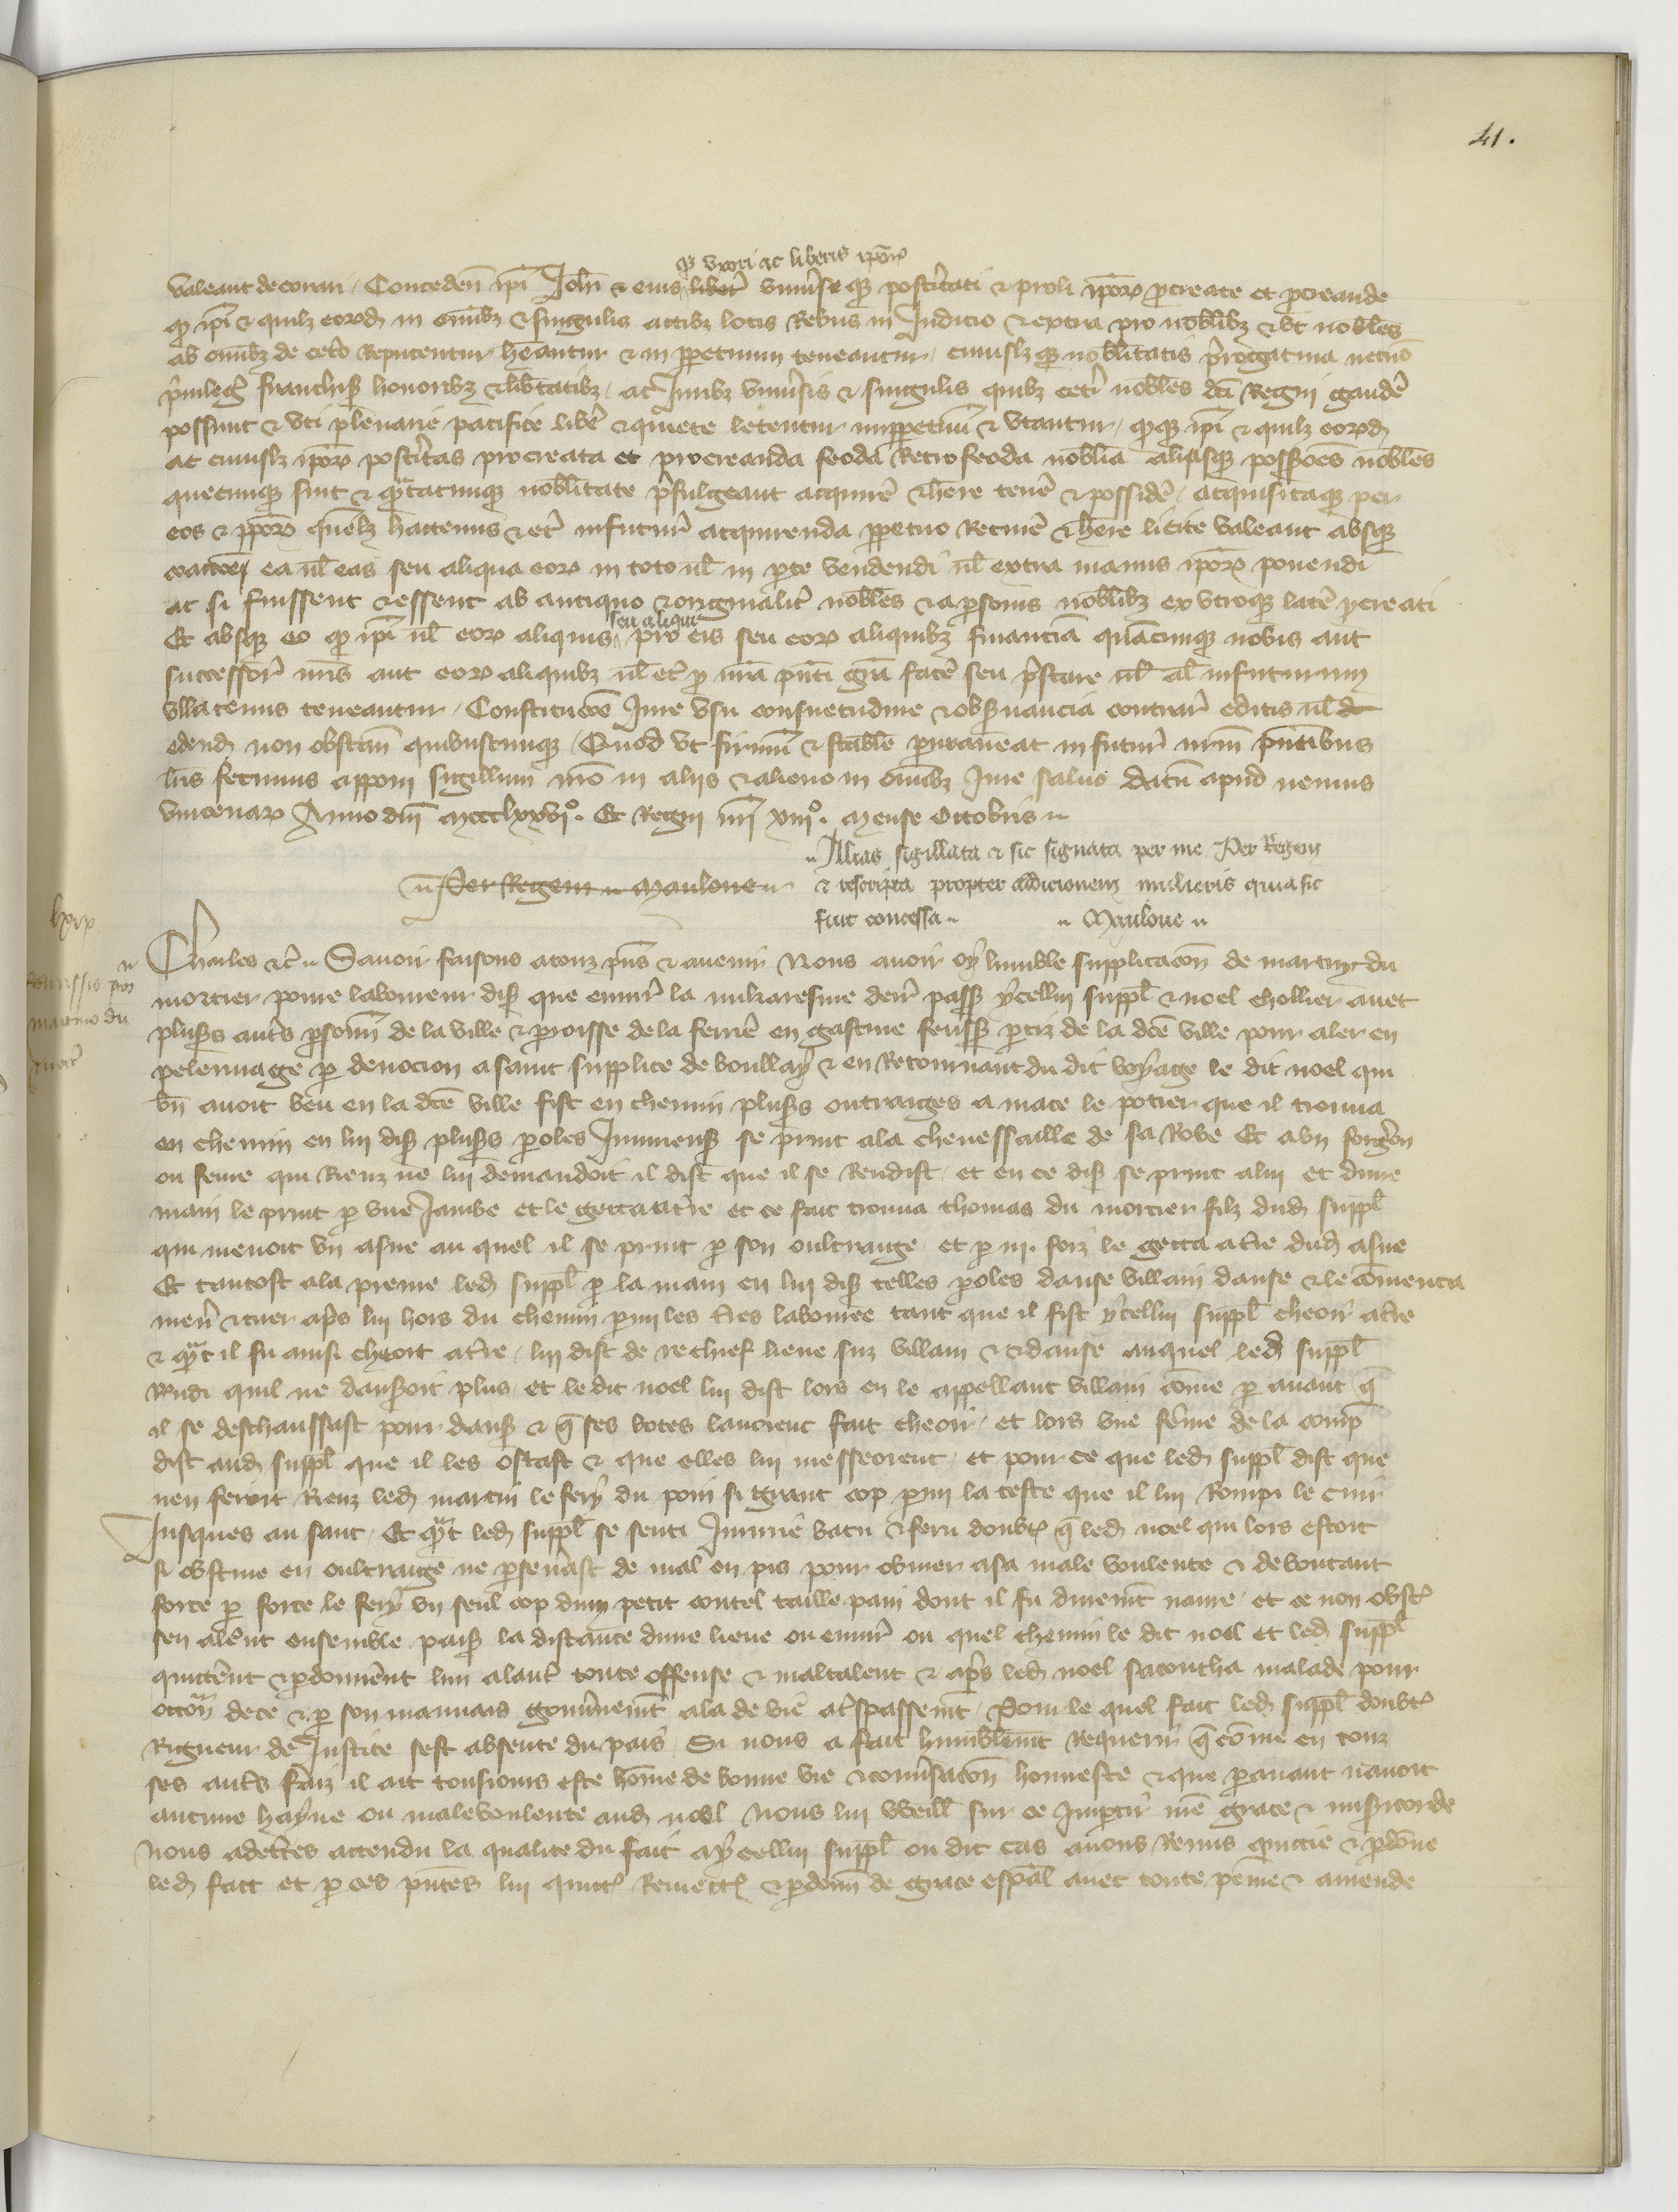 41.
qz uxori ac liberis ipor
valeant decorari, Conceden ipi Johi & eius liber universe qz posteritati & proli ipor procreate et procreande
qz ipi & quilz eord in omibz & singulis actibz locis Rebus in Judicio & extra pro nobilibz & ut nobiles
ab omibz de cetero Reputentur heantur & in perpetuum teneantur, cuiuslz qz nobilitatis prerogativa necno
privileg franchis honoribz & libertatibz, ac Juribz universis & singulis quibz ceteri nobiles dci Regni gaudere
possunt & uti plenarie pacifice libere & quiete letentur imperpetuu & utantur, qz qz ipi & quilz eord
ac cuiuslz ipor posteritas procreata et procreanda feoda Retrofeoda nobilia aliasqz possessioes nobiles
quecumqz sint & quatacumqz nobilitate prefulgeant acquirere & here tenere & possidere, acquisitaqz per
eos & ipor quelz hactenus & etia infuturu acquirenda perpetuo Retinere & here licite valeant absqz
coactioe ea vel eas seu aliqua eor in toto vel in parte vendendi vel extra manus ipor ponendi
ac si fuissent & essent ab antiquo & originaliter nobiles & a personis nobilibz ex utroqz latere procreati
seu aliqui
Et absqz eo qz ipi vel eor aliquis pro eis seu eor aliquibz financia quacumqz nobis aut
successor nris aut eor aliquibz vel etia pro nra pnti gra facere seu prestare vel al infuturum
ullatenus teneantur, Constitucioe Jure usu consuetudine & observancia contrar editis vel de
edend non obstan quibuscumqz Quod ut firmu & stabile permaneat in futur nrm pntibus
lris fecimus apponi sigillum nro in aliis & alieno in omibz Jure salvo Datu apud nemus
vincenar Anno dni mccclxxvi°. Et Regni nri xiii°. Mense Octobris
Alias sigillata & sic signata per me Per Regem
Per Regem Maulone & rescripta propter addicionem mulieris qua sic
fuit concessa Maulone
Charles &c Savoir faisons atouz pns & avenir Nous avoir oy lumble supplicacon de martin du
mortier povre laboureur dis que environ la mikaresme derr passe ycellui suppl & noel chollier avec
plus autres person de la ville & proisse de la ferrie en gastine feuss partiz de la dce ville pour aler en
pelerinage par devocion a saint supplice de boullay & en Retournant du dit voyage le dit noel qui
bn avoit beu en la dce ville fist en chemin plus outraiges a mace le potier que il trouva
en chemin en lui dis plus proles Jnjurieus se print ala chevessaille de sa Robe Et a un forgeron
ou feure qui Rienz ne lui demandoit il dist que il se Rendist, et en ce dis se print alui et dune
main le print par une Jambe et le getta atre et ce fait trouva thomas du mortier filz dud suppl
qui menoit un asne au quel il se print par son oultrauge et par iii. foiz le getta atre dud asne
Et tantost ala prenre led suppl par la main en lui dis telles proles danse villain danse & le comenca
mener & tirer aps lui hors du chemin parmi les tres labourees tant que il fist ycellui suppl cheoir atre
& quat il fu ainsi cheoit atre, lui dist de rechief lieve suz villain & danse auquel led suppl
Rndi quil ne danseroit plus, et le dit noel lui dist lors en le appellant villain come par avant q
il se deschaussast pour danser & q ses botes lavoient fait cheoir, et lors une feme de la comp
dist aud suppl que il les ostast & que elles lui messeoient, et pour ce que led suppl dist que
nen feroit Rienz led martin le fery du poin si grant cop parmi la teste que il lui Rompi le cuir
Jusques au sanc, Et quat led suppl se senti Jnjurie batu & feru doubt q led noel qui lors estoit
si obstine en oultrauge ne perseverast de mal en pis pour obvier a sa male voulente & deboutant
force par force le fery un seul cop dun petit coutel taillepain dont il fu dmt navre, et ce non obst
sen alerent ensemble paisi la distance dune lieue ou environ ou quel chemin le dit noel et led suppl
quitterent & perdonnerent lun alautre toute offense & maltalent & aps led noel sacoucha malade pour
occon dece & par son mauvais gouvnemt ala de vie a trspassemt, Pour le quel fait led suppl doubt
Rigueur de Justice sest absente du pais, Si nous a fait humblemt Requerir q come en touz
ses autres faiz il ait tousjours este home de bonne vie & conversacon honneste & que paravant navoit
aucune hayne ou malevoulente aud noel Nous lui vueill sur ce Jmpartir nre grace & misericorde
Nous adecertes attendu la qualite du fait a ycellui suppl ou dit cas avons Remis quictie & pardone
led fait et par ces pntes lui quitt Remett & pardonn de grace espal avec toute peine & amende